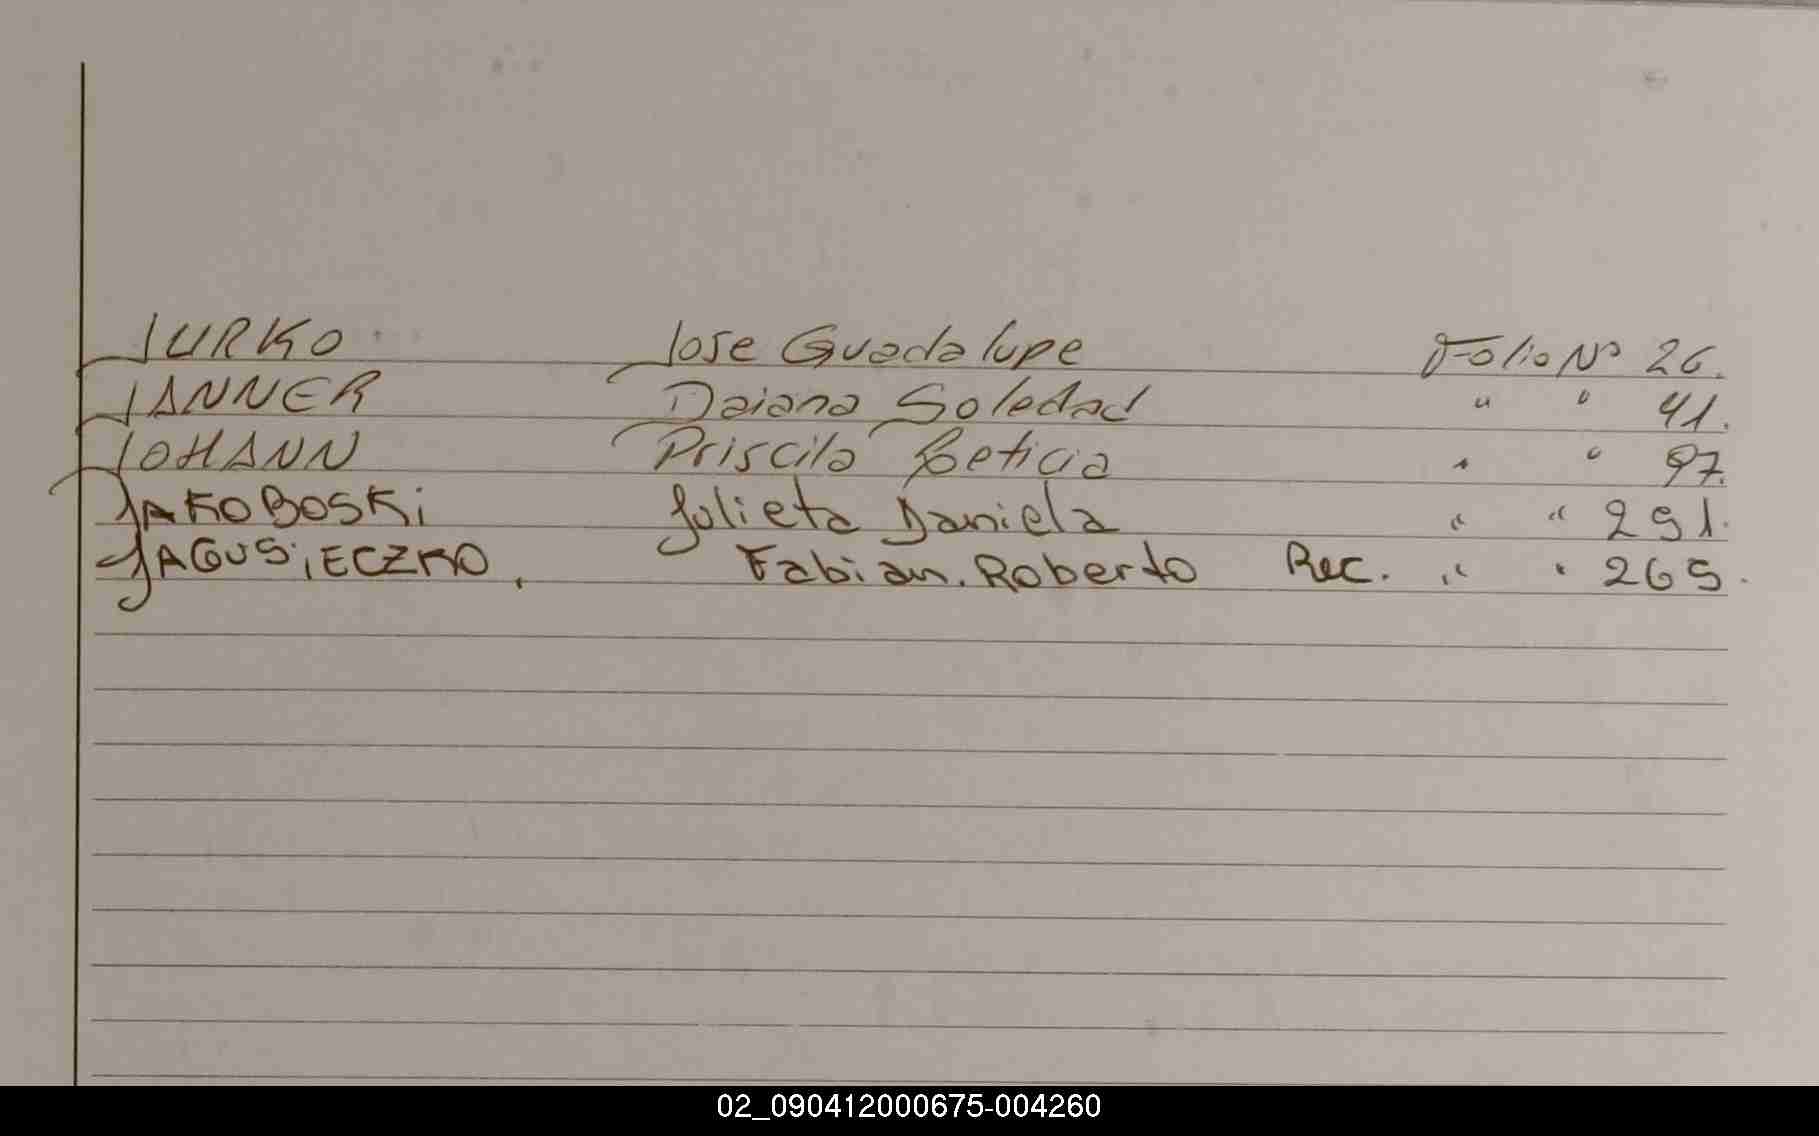 JURKO Jose Guadalupe Folio Nº 26.
JANNER Daiana Soledad " " 41.
JOHANN Priscila Leticia " " 97.
JAKOBOSKi Julieta Daniela " " 291.
JAGUSiECZKO, Fabian. Roberto Rec. " " 269.
02_090412000675-004260